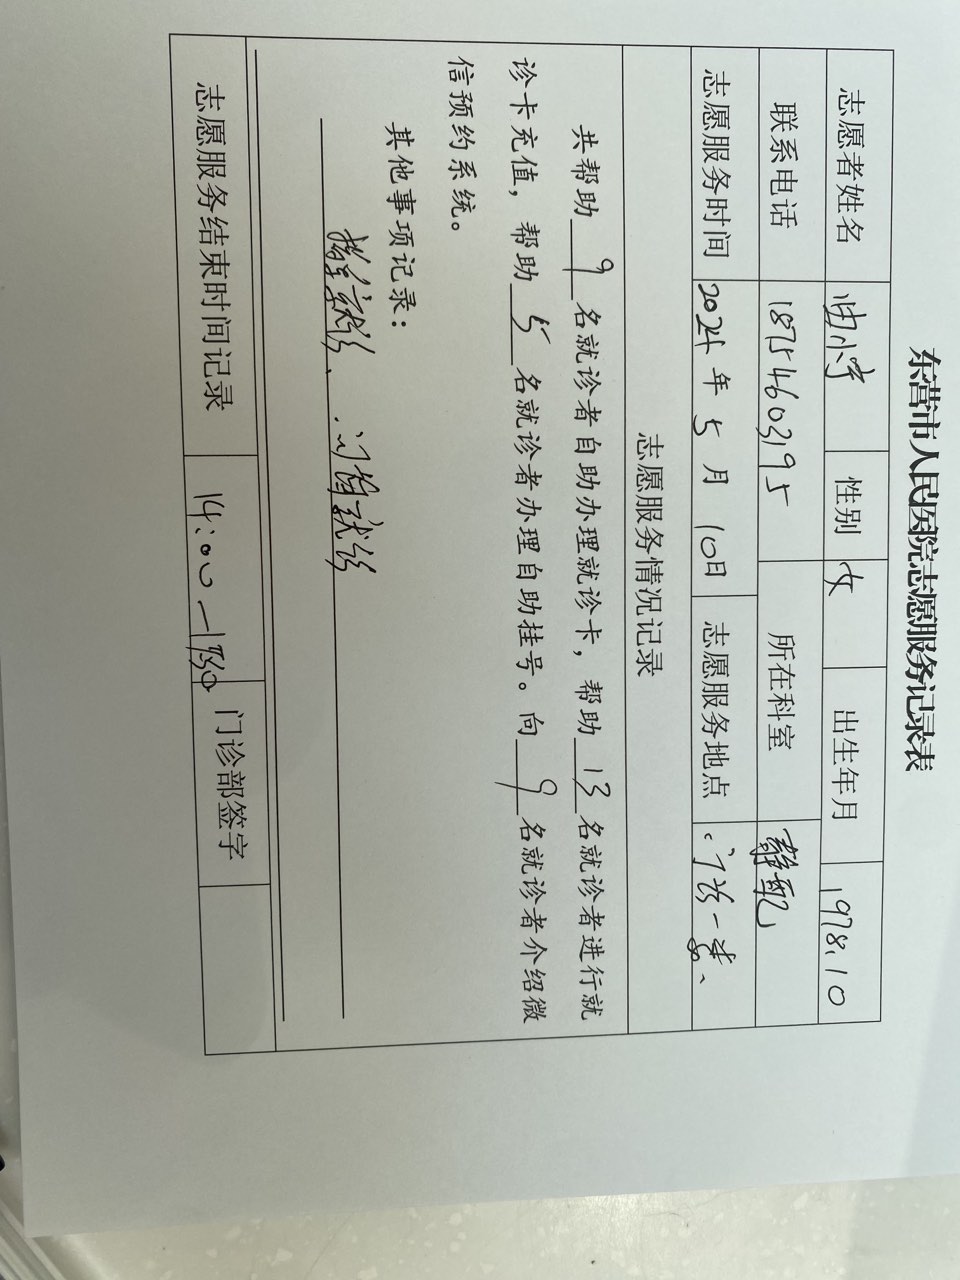 东营市人民医院志愿服务记录表
志愿者姓名 曲小宁 性别 女 出生年月 1978.10
联系电话 18754603195 所在科室 静配
志愿服务时间 2024年5月10日 志愿服务地点 门诊一楼、
志愿服务情况记录
共帮助 9 名就诊者自助办理就诊卡，帮助 13 名就诊者进行就
诊卡充值，帮助 5 名就诊者办理自助挂号。向 9 名就诊者介绍微
信预约系统。
其他事项记录：
志愿服务结束时间记录 14:00— 门诊部签字